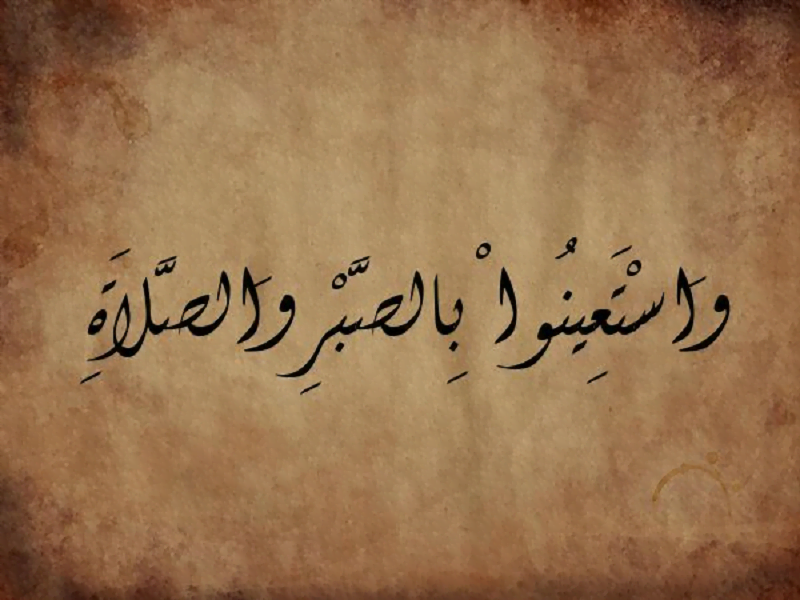 وَاسْتَعِينُواْ بِالصَّبْرِ وَالصَّلاَةِ